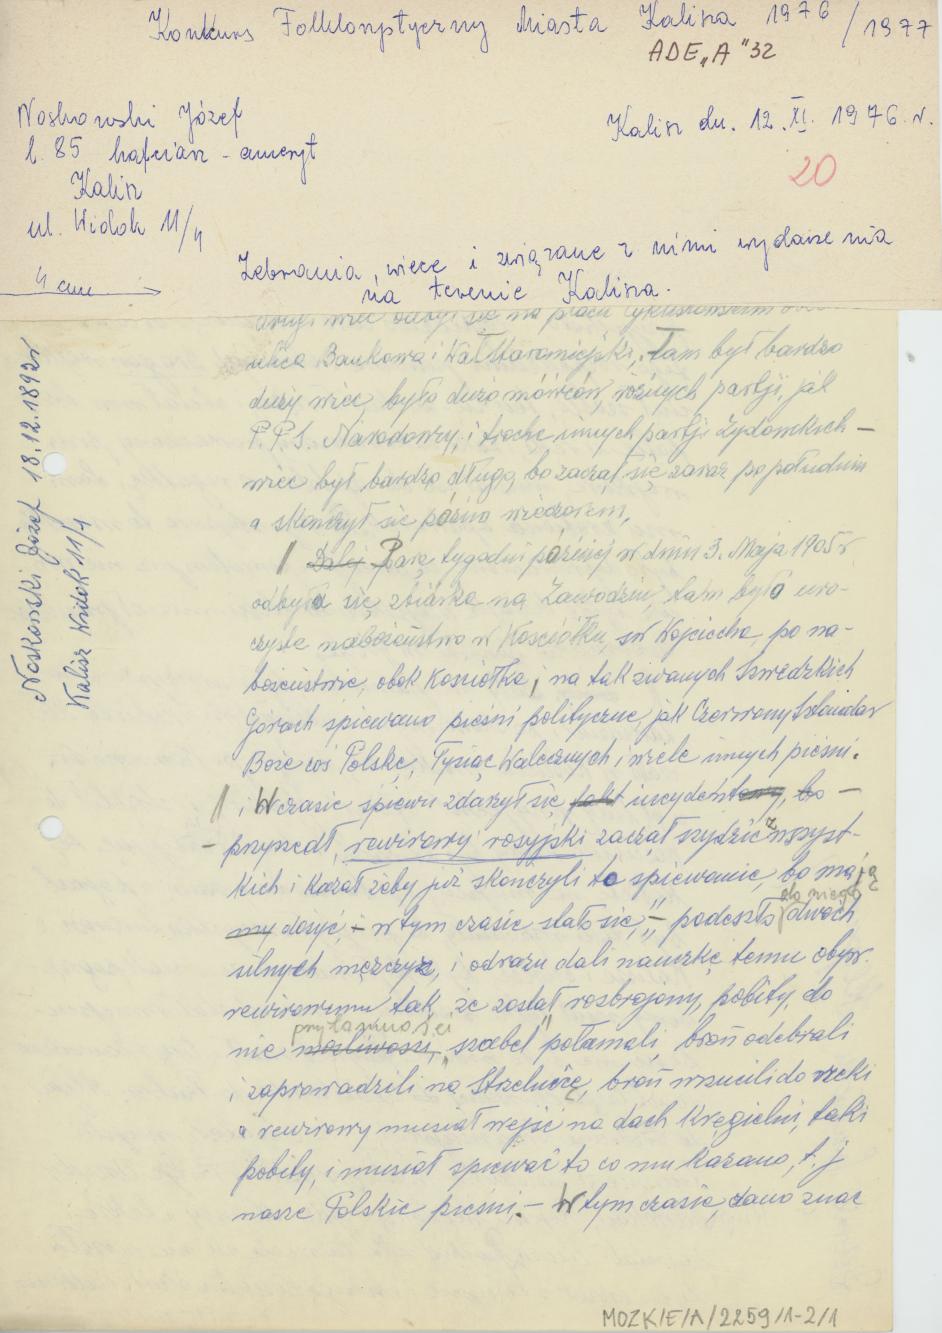 Konkurs Folklorystyczny Miasta Kalisza 1976/1977
ADE "A" 32
Noskowski Józef
l. 85 hafciarz - emeryt
Kalisz
ul. Widok 11/4
Kalisz dn. 12.XI. 1976 r.
20
Zebrania, wiece i związane z nimi wydarzenia
na terenie Kalisza.
Noskowski Józef 18.12.1892r
Kalisz Widok 11/4
drugi wiec odbył się na placu
ulica Bankowa i Wał Staromiejski, Tam był bardzo
duży wiec, było dużo mówców, różnych partji, jak
P.P.S. Narodowy, i troche innych partji Żydowskich -
wiec był bardzo długo, bo zaczął się zaraz po południu
a skończył się późno wieczorem,
Dalej Parę tygodni później w dniu 3. Maja 1905 r
odbyła się zbiórka na Zawodziu, tam było uro-
czyste nabożeństwo w Kościółku, św Wojciecha, po na-
bożeństwie, obok Kosciołka, na tak zwanych Szwedzkich
Górach śpiewano pieśni polityczne, jak Czerwony Sztandar
Boże coś Polskę, Tysiąc Walecznych i wiele innych pieśni.
i W czasie śpiewu zdarzył się fakt incydent bo -
- przyszedł, rewirowy rosyjski zaczął szydzić z wszyst-
kich i kazał żeby już skończyli to śpiewanie, bo mają
my dosyć, - w tym czasie stało się, - podeszło do niego dwóch
silnych mężczyzn, i odrazu dali nauczkę temu obyw.
rewirowemu tak, że został rozbrojony, pobity, do
nie możliwości, przytomności szabel połamali, broń odebrali
i zaprowadzili na Strzelnicę, broń wrzucili do rzeki
a rewirowy musiał wejść na dach Kręgielni, taki
pobity, i musiał śpiewać to co mu kazano, t. j
nasze Polskie pieśni. - W tym czasie, dano znać
MOZK/E/A/2259/1-2/1